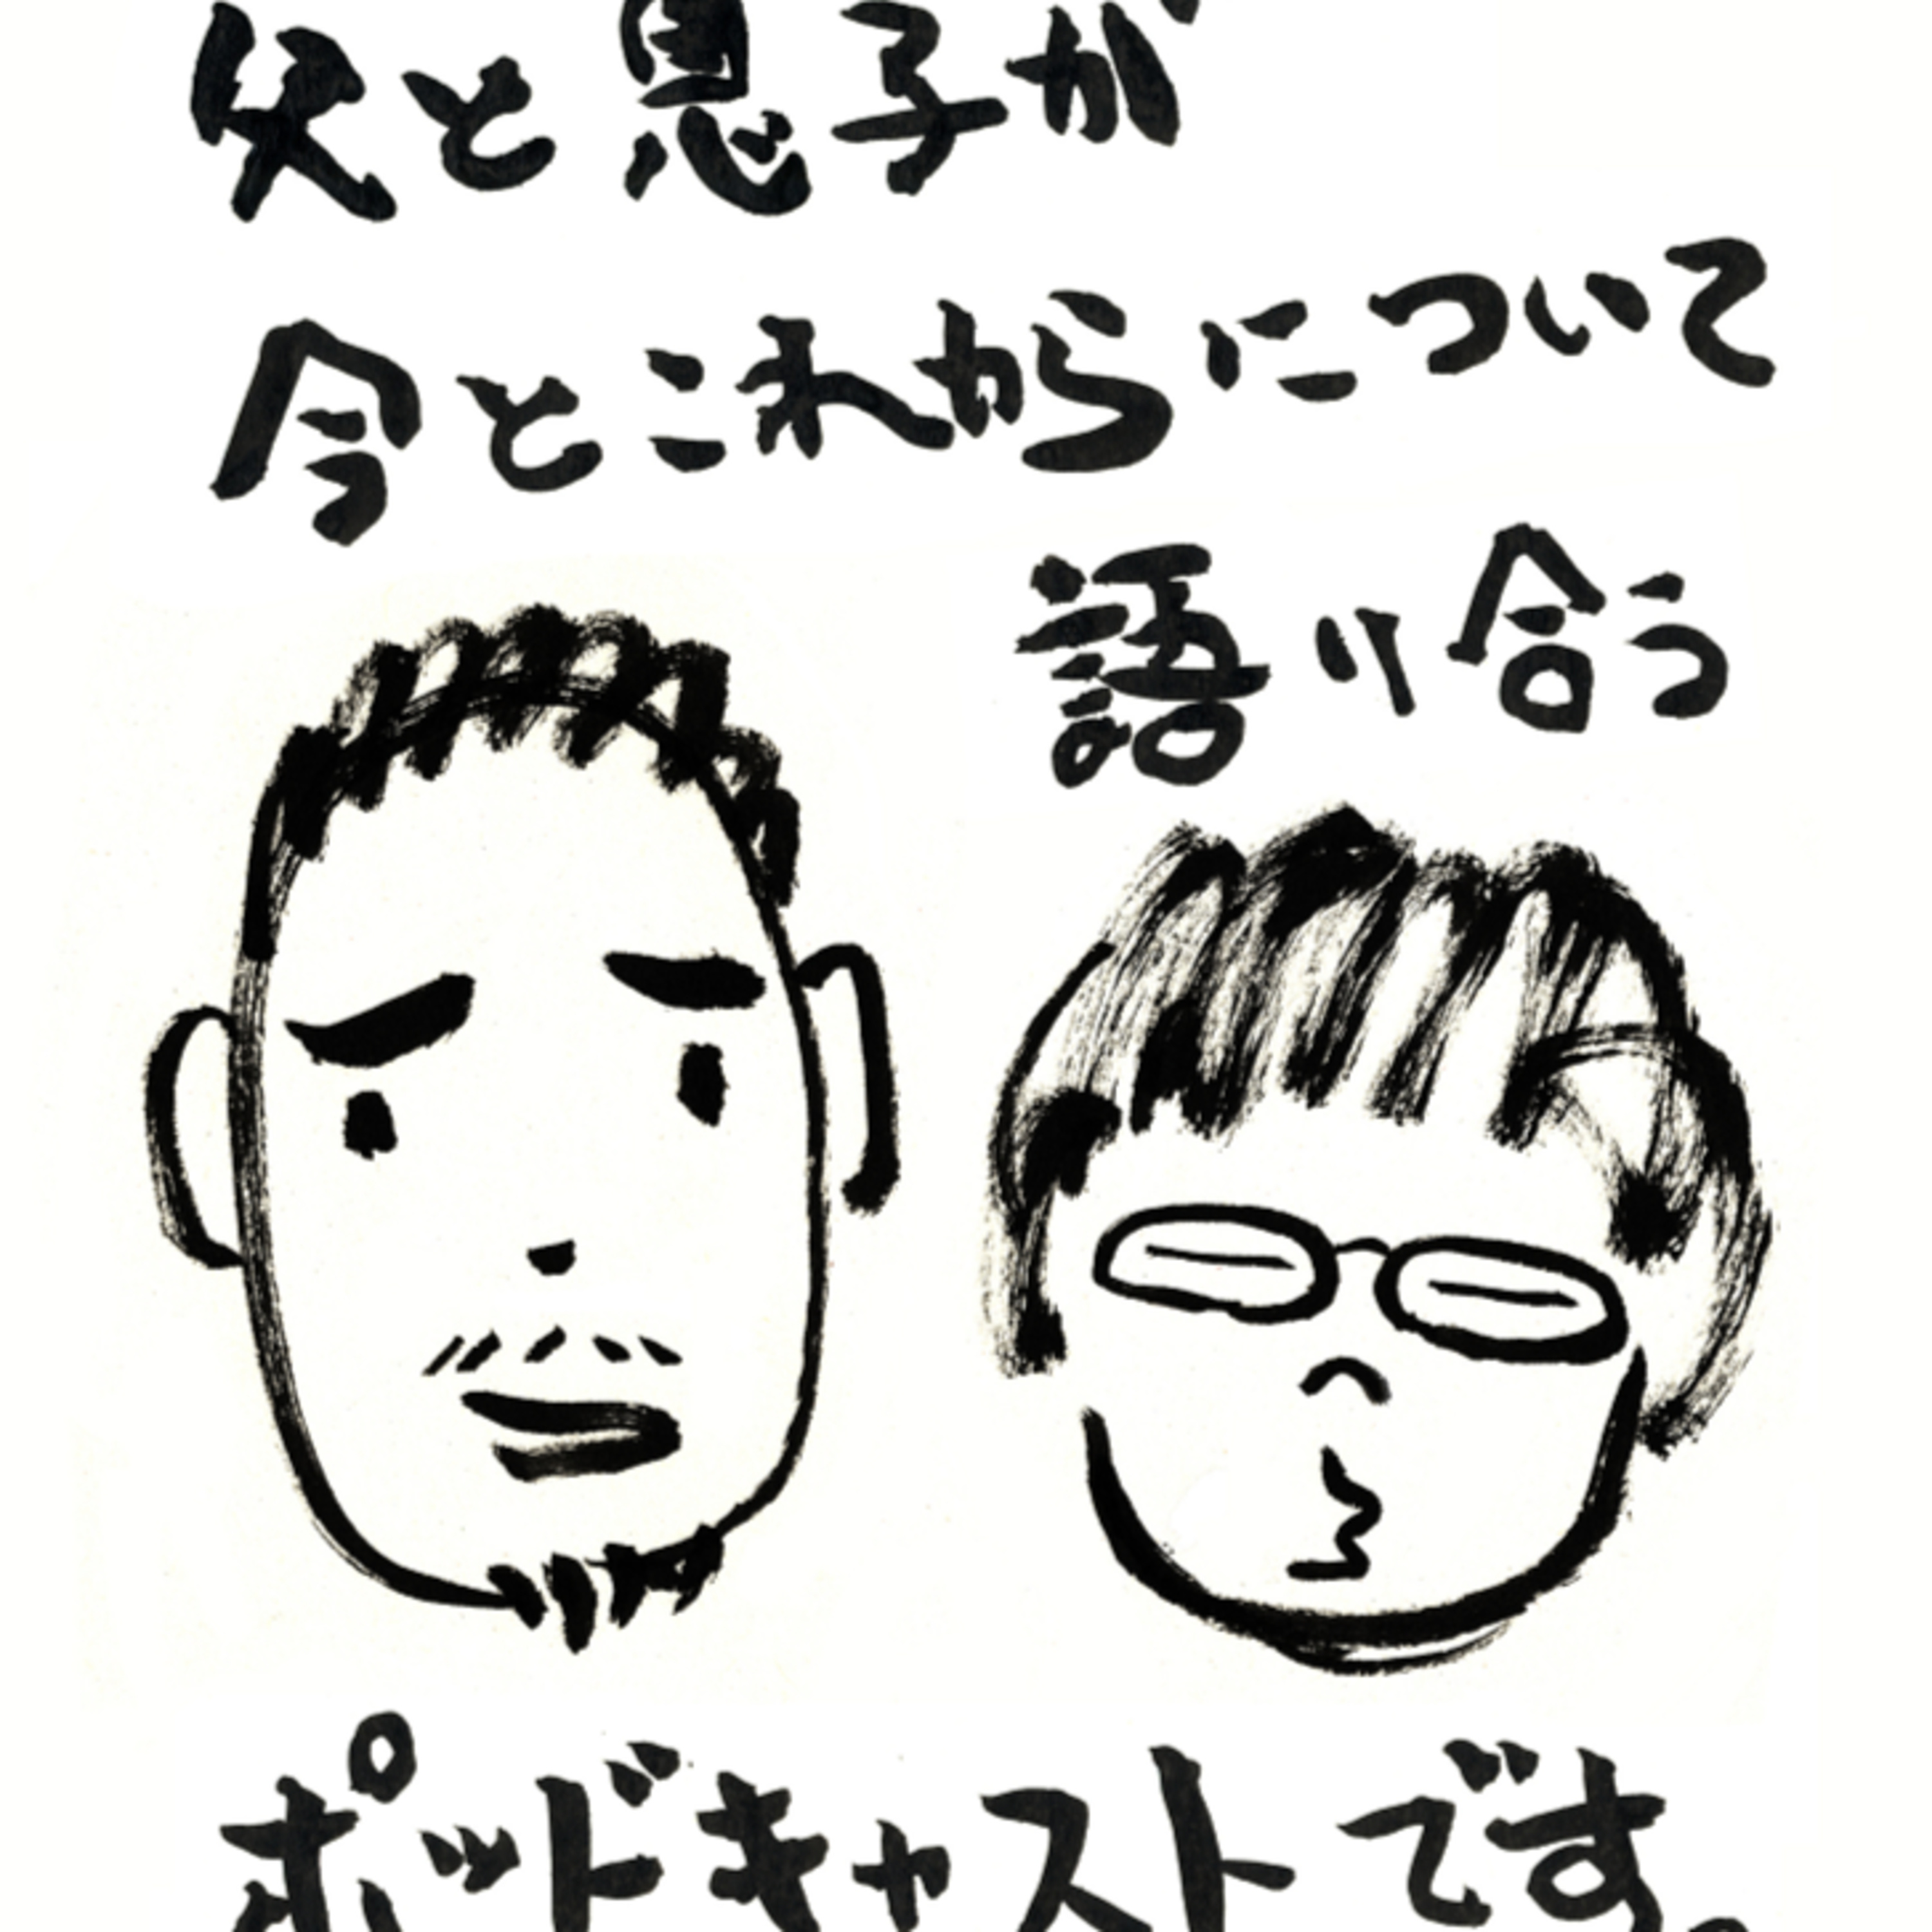 父と息子が
今とこれからについて
語り合う
ポッドキャストです。